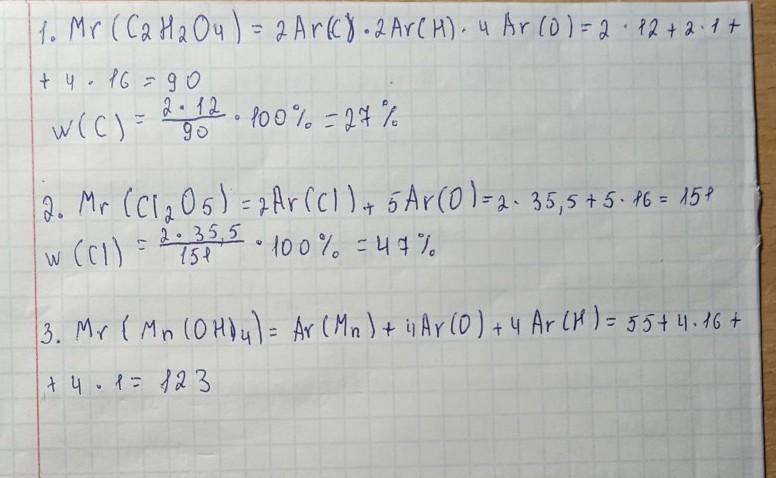 1. Mr (C2H2O4) = 2Ar(C) · 2Ar(H) · 4 Ar(O) = 2 · 12 + 2 · 1 +
+ 4 · 16 = 90
w(C) = 2 · 12 / 90 · 100% = 27%
2. Mr (Cl2O5) = 2Ar(Cl) + 5Ar(O) = 2 · 35,5 + 5 · 16 = 151
w (Cl) = 2 · 35,5 / 151 · 100% = 47%
3. Mr (Mn(OH)4) = Ar(Mn) + 4Ar(O) + 4 Ar(H) = 55 + 4 · 16 +
+ 4 · 1 = 123